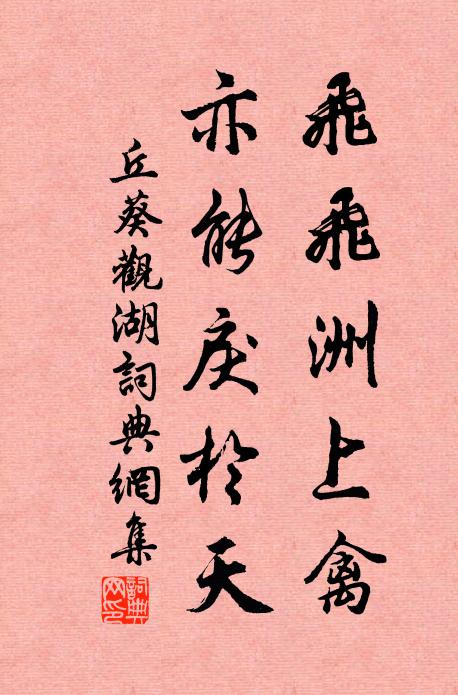 飛飛洲上禽
亦能戾於天
丘葵觀湖詞典網集
詞典
网印